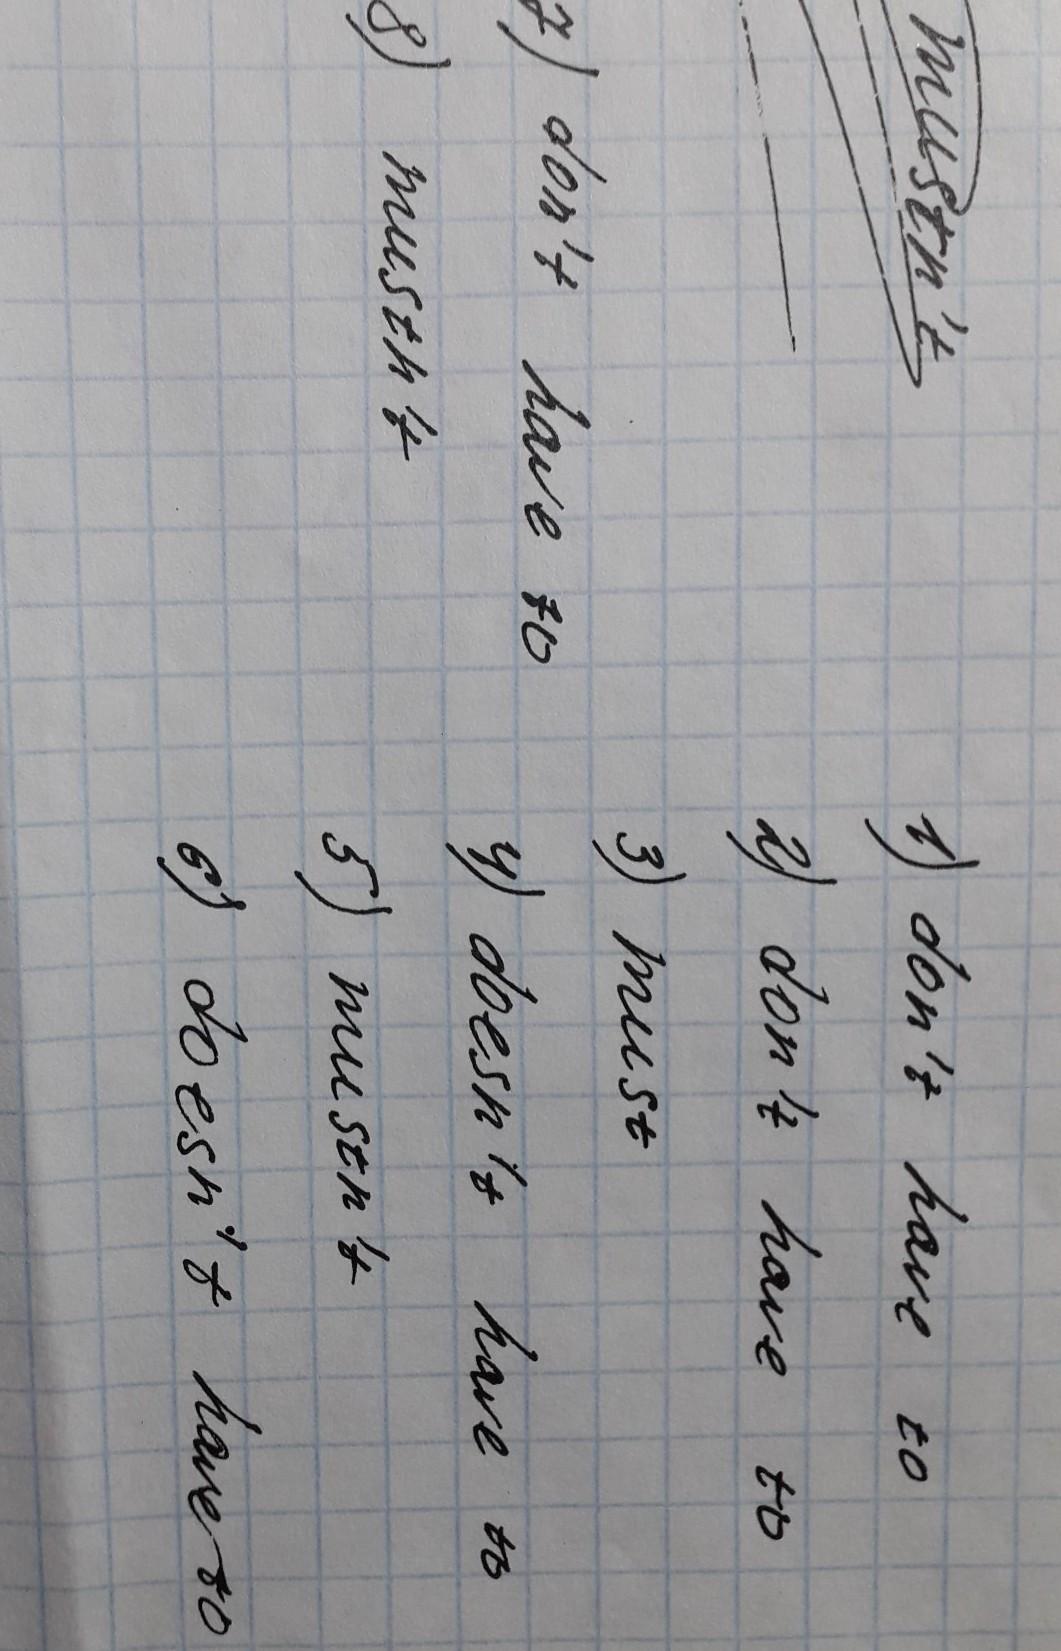 mustn't
7) don't have to
8) mustn't
1) don't have to
2) don't have to
3) must
4) doesn't have to
5) mustn't
6) doesn't have to